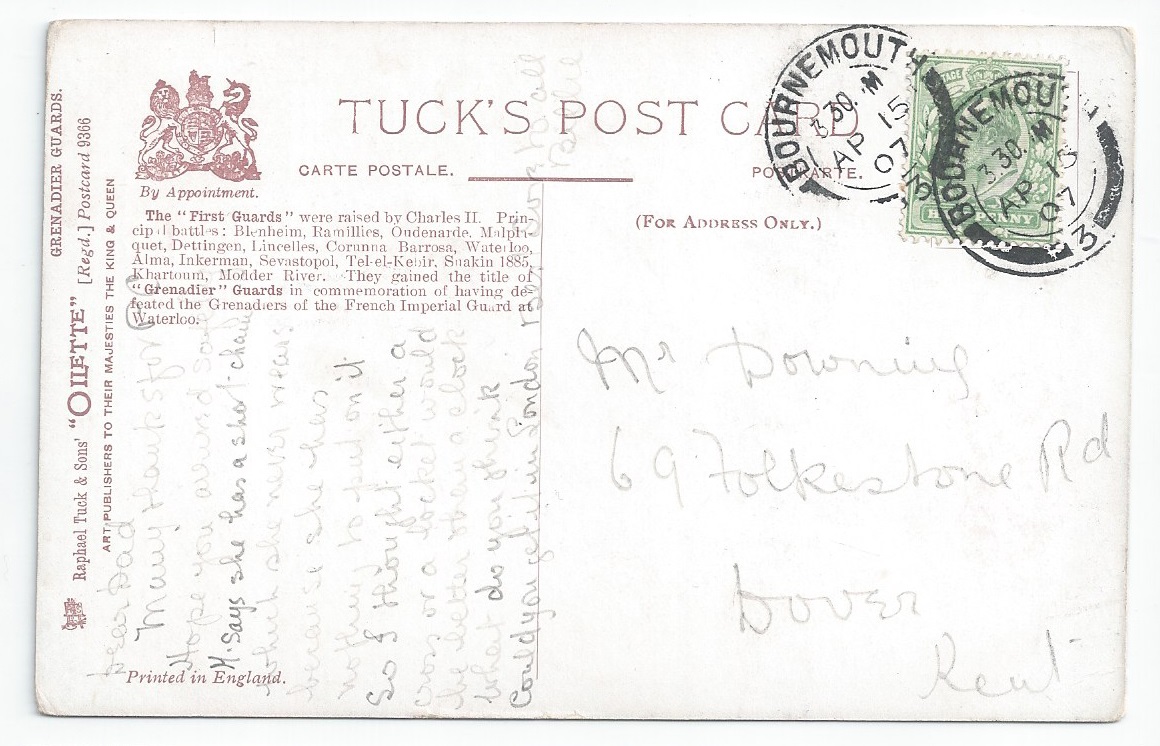 GRENADIER GUARDS.
Raphael Tuck & Sons' "OILETTE" [Regd.] Postcard 9366
ART PUBLISHERS TO THEIR MAJESTIES THE KING & QUEEN
By Appointment.
TUCK'S POST CARD
CARTE POSTALE. POSTKARTE.
(FOR ADDRESS ONLY.)
The "First Guards" were raised by Charles II. Prin-
cipal battles: Blenheim, Ramillies, Oudenarde, Malpla-
quet, Dettingen, Lincelles, Corunna Barrosa, Waterloo,
Alma, Inkerman, Sevastopol, Tel-el-Kebir, Suakin 1885,
Khartoum, Modder River. They gained the title of
"Grenadier" Guards in commemoration of having de-
feated the Grenadiers of the French Imperial Guard at
Waterloo.
Printed in England.
BOURNEMOUTH
3.30. M
AP 15
07
BOURNEMOUTH
3.30. M
AP 15
07
3
POSTAGE
HALFPENNY
Dear Dad
Many thanks for P.C.
Hope you arrived safe
H. Says she has a short chain
which she never wears
because she has
nothing to put on it
So I thought either a
cross or a locket would
be better than a clock
What do you think
Could you get it in London
love to all
Mr Downing
69 Folkestone Rd
Dover
Kent